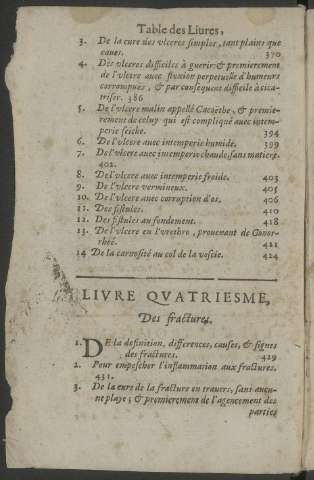 Table des Liures,
3. De la cure des vlceres simples, tant plains que
caues. 370
4. Des vlceres difficiles à guerir: & premierement
de l'vlcere auec fluxion perpetuelle d'humeurs
corrompuës, & par consequent difficile à cica-
triser. 386
5. De l'vlcere malin appellé Cacoëthe, & premie-
rement de celuy qui est compliqué auec intem-
perie seiche. 394
6. De l'vlcere auec intemperie humide. 399
7. De l'vlcere auec intemperie chaude, sans matiere.
402.
8. De l'vlcere auec intemperie froide. 403
9. De l'vlcere vermineux. 405
10. De l'vlcere auec corruption d'os. 406
11. Des fistules. 410
12. Des fistules au fondement. 418
13. De l'vlcere en l'vrethre, prouenant de Gonor-
rhée. 421
14 De la carnosité au col de la vescie. 424
LIVRE QVATRIESME,
Des fractures.
1. DE la definition, differences, causes, & signes
des fractures. 429
2. Pour empescher l'inflammation aux fractures.
431.
3. De la cure de la fracture en trauers, sans aucu-
ne playe; & premierement de l'agencement des
parties